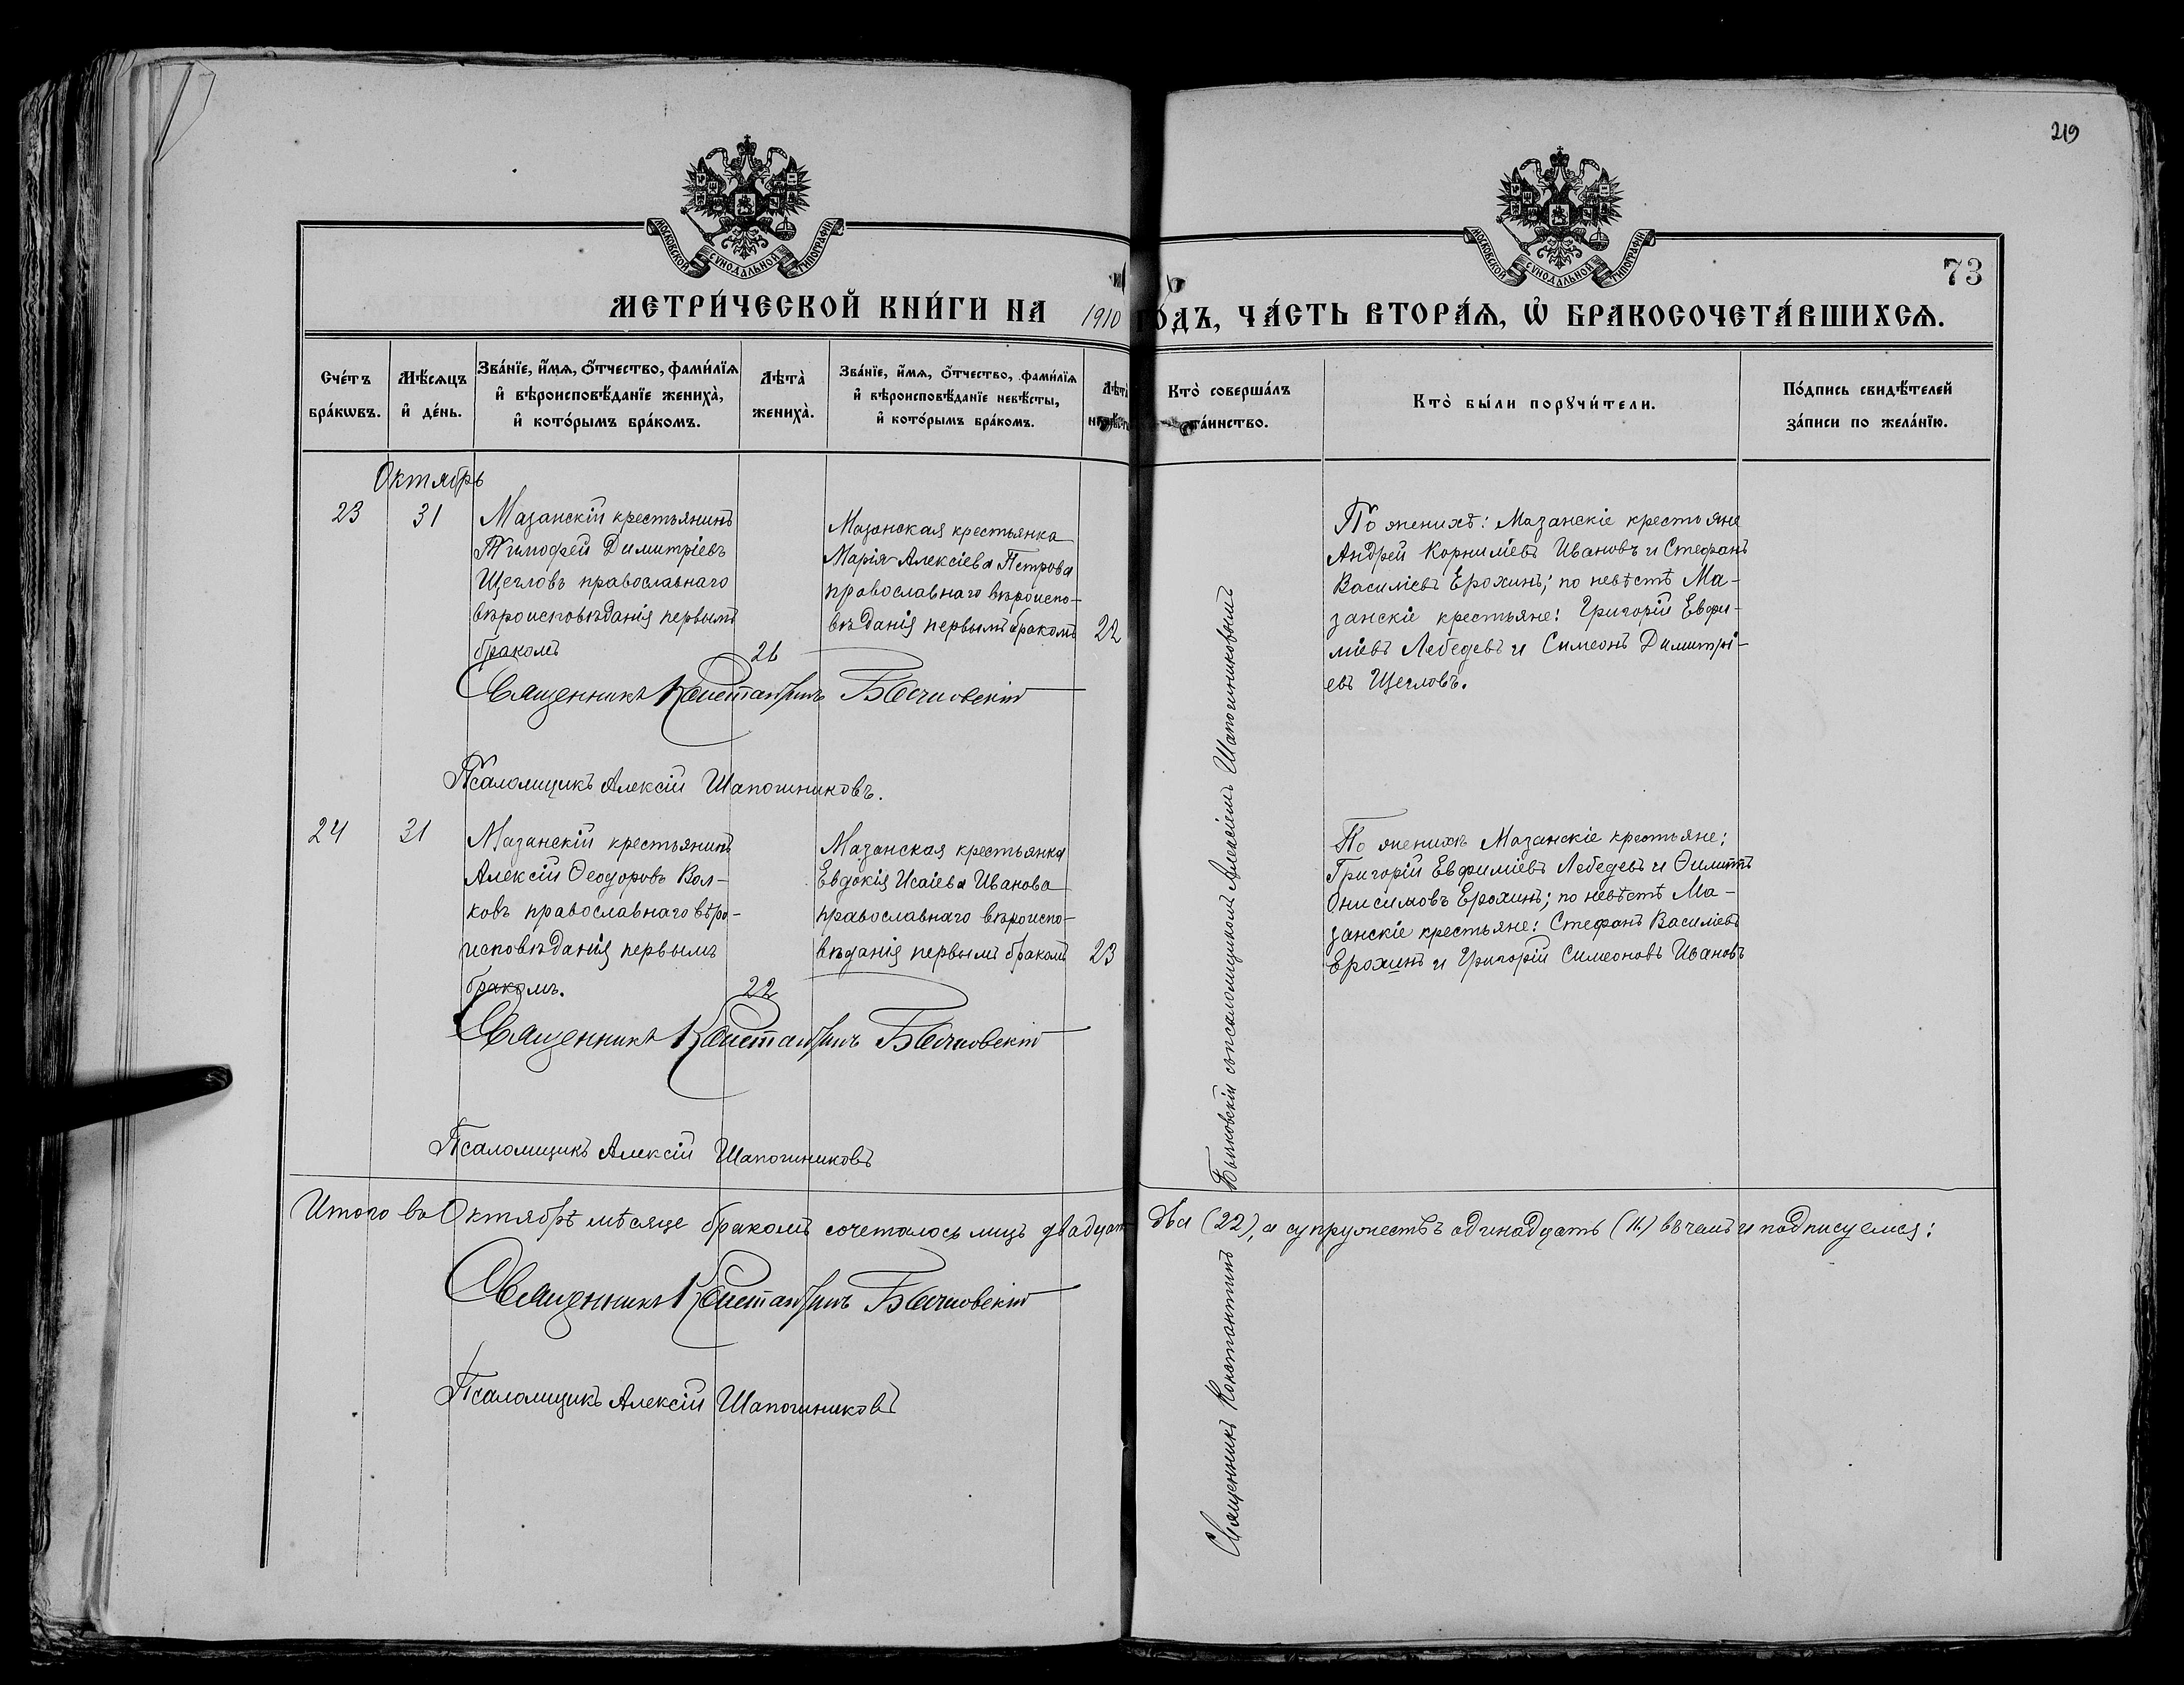 219
МОСКОВСКОЙ СѴНОДАЛЬНОЙ ТИПОГРАФІИ
МОСКОВСКОЙ СѴНОДАЛЬНОЙ ТИПОГРАФІИ
73
МЕТРИ́ЧЕСКОЙ КНИ́ГИ НА 1910 ГО́ДЪ, ЧА́СТЬ ВТОРА́Ѧ, Ѡ҆ БРАКОСОЧЕТА́ВШИХСѦ.
Сче́тъ бра́кѡвъ.
Мѣ́сѧцъ и҆ де́нь.
Зва́нїе, и҆́мѧ, ѻ҆́тчество, фами́лїѧ и҆ вѣроисповѣ́данїе жениха̀, и҆ кото́рымъ бра́комъ.
Лѣта̀ жениха̀.
Зва́нїе, и҆́мѧ, ѻ҆́тчество, фами́лїѧ и҆ вѣроисповѣ́данїе невѣ́сты, и҆ кото́рымъ бра́комъ.
Лѣта̀
Кто̀ соверша́лъ та́инство.
Кто̀ бы́ли порꙋчи́тели.
По́дпись свидѣ́телей за́писи по жела́нїю.
Октябрь
23
31
Мазанскій крестьянинъ
Тимофей Димитріевъ
Щегловъ православнаго
вѣроисповѣданія первымъ
бракомъ
26
Мазанская крестьянка
Марія Алексіева Петрова
православнаго вѣроиспо-
вѣданія первымъ бракомъ
22
По женихѣ: Мазанскіе крестьяне
Андрей Корниліевъ Ивановъ и Стефанъ
Василіевъ Ерохинъ; по невѣстѣ Ма-
занскіе крестьяне: Григорій Евфи-
міевъ Лебедевъ и Симеонъ Димитрі-
евъ Щегловъ.
Священникъ Константинъ Бычковскій
Псаломщикъ Алексій Шапошниковъ.
24
31
Мазанскій крестьянинъ
Алексій Ѳеодоровъ Вол-
ковъ православнаго вѣро-
исповѣданія первымъ
бракомъ.
22
Мазанская крестьянка
Евдокія Исаіева Иванова
православнаго вѣроиспо-
вѣданія первымъ бракомъ
23
По женихѣ Мазанскіе крестьяне:
Григорій Евфиміевъ Лебедевъ и
Онисимовъ Ерохинъ; по невѣстѣ Ма-
занскіе крестьяне: Стефанъ Василіевъ
Ерохинъ и Григорій Симеоновъ Ивановъ
Священникъ Константинъ Бычковскій
Псаломщикъ Алексій Шапошниковъ
Священникъ Константинъ Бычковскій съ псаломщикомъ Алексіемъ Шапошниковымъ
Итого во Октябрѣ мѣсяце бракомъ сочеталось лицъ двадцать два (22), а супружествъ одинадцать (11) въ чемъ и подписуемся:
Священникъ Константинъ Бычковскій
Псаломщикъ Алексій Шапошниковъ